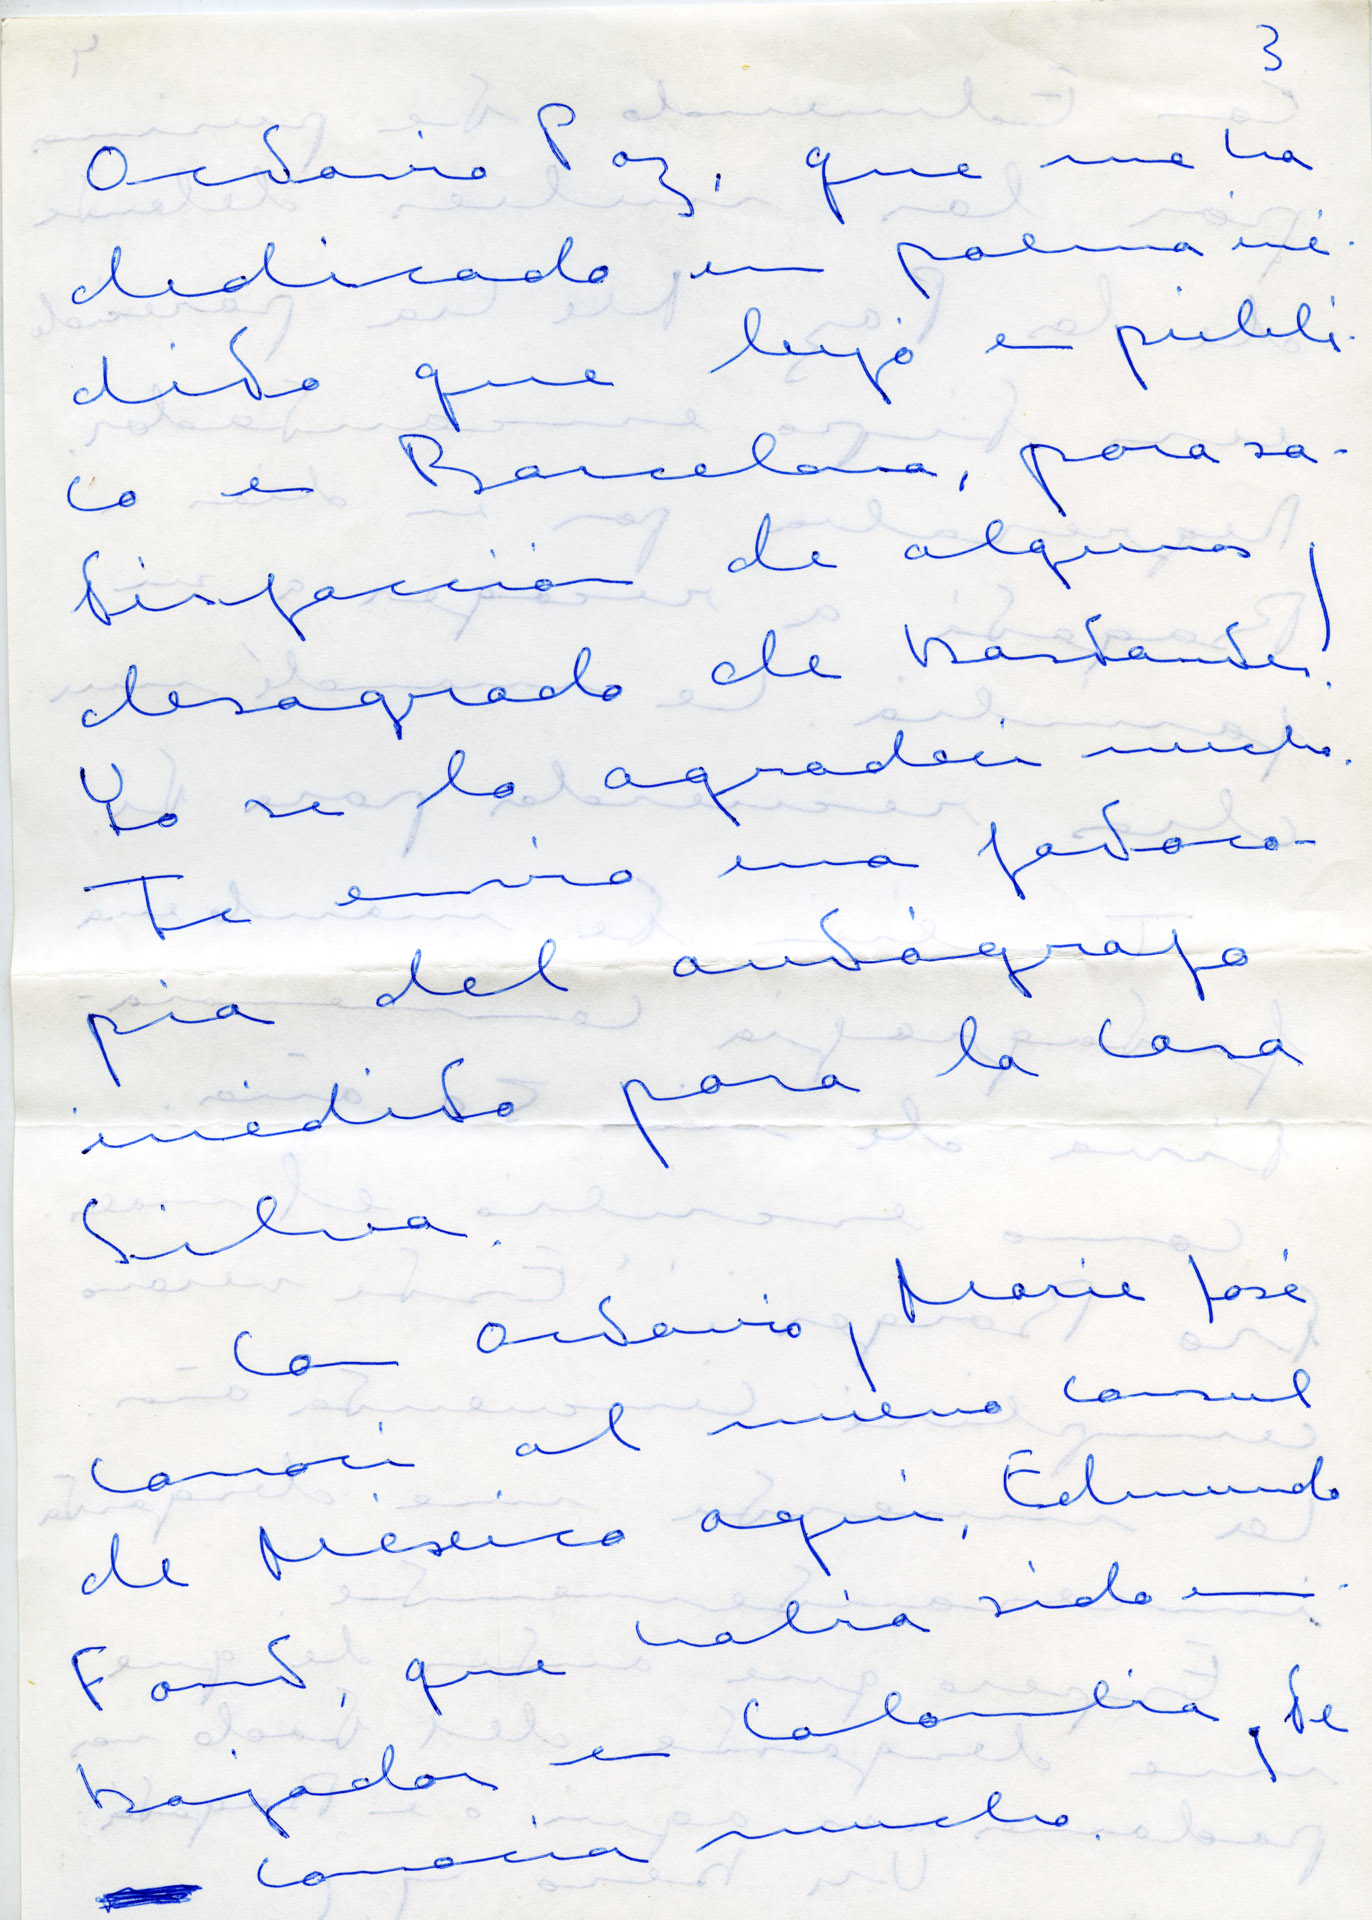 3
Octavio Paz, que me ha
dedicado un poema iné-
dito que leyó en públi-
co en Barcelona, para sa-
tisfacción de algunos y
desagrado de bastantes.
Yo se lo agradecí mucho.
Te envío una fotoco-
pia del autógrafo
inédito para la Casa
Silva.
Con Octavio y Marie José
conocí al nuevo consul
de México aquí, Edmundo
Font, que había sido em-
bajador en Colombia y te
conocía mucho.